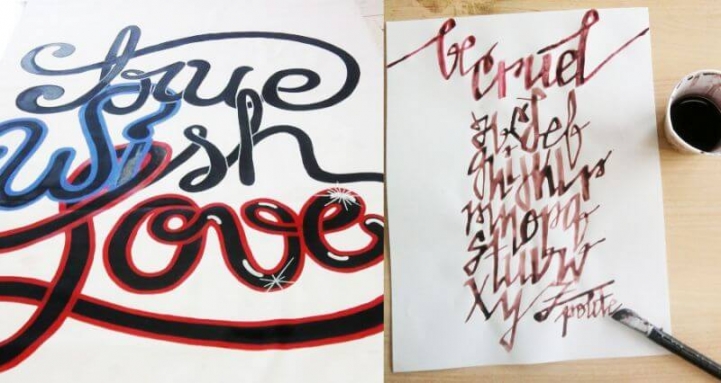 true
Wish
Love
be
cruel
abcdef
ghijkl
mnopqr
stuvw
xyz
polite